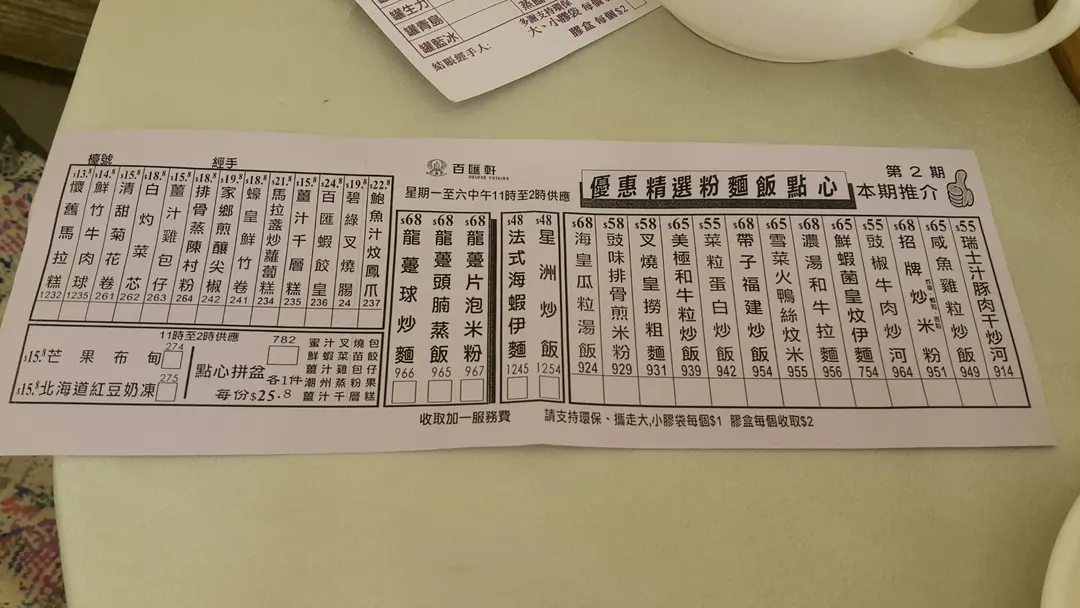 罐生力
罐青島
罐藍冰
結賬經手人:
多謝支持環保
大、小膠袋 每個
膠盒 每個 $2
檯號
經手
百匯軒
DELUXE CUISINE
星期一至六中午11時至2時供應
優惠精選粉麵飯點心
第2期
本期推介
$13.8 懷舊馬拉糕 1232
$14.8 鮮竹牛肉球 1235
$15.8 清甜菊花卷 261
$18.8 白灼菜芯 262
$15.8 薑汁雞包仔 263
$18.8 排骨蒸陳村粉 264
$19.8 家鄉煎釀尖椒 242
$18.8 蠔皇鮮竹卷 241
$21.8 馬拉盞炒蘿蔔糕 234
$15.8 薑汁千層糕 235
$24.8 百匯蝦餃皇 236
$19.8 碧綠叉燒腸 24
$22.8 鮑魚汁炆鳳爪 237
11時至2時供應
$15.8 芒果布甸 274
$15.8 北海道紅豆奶凍 275
782
點心拼盆 各1件
每份$25.8
蜜汁叉燒包
鮮蝦菜苗餃
薑汁雞包仔
潮州蒸粉果
薑汁千層糕
$68 龍躉球炒麵 966
$68 龍躉頭腩蒸飯 965
$68 龍躉片泡米粉 967
$48 法式海蝦伊麵 1245
$48 星洲炒飯 1254
$68 海皇瓜粒湯飯 924
$58 豉味排骨煎米粉 929
$58 叉燒皇撈粗麵 931
$65 美極和牛粒炒飯 939
$55 菜粒蛋白炒飯 942
$68 帶子福建炒飯 954
$65 雪菜火鴨絲炆米 955
$68 濃湯和牛拉麵 956
$65 鮮蝦菌皇炆伊麵 754
$55 豉椒牛肉炒河 964
$68 招牌炒米粉 951
$65 咸魚雞粒炒飯 949
$55 瑞士汁豚肉干炒河 914
收取加一服務費
請支持環保、攜走大,小膠袋每個$1 膠盒每個收取$2